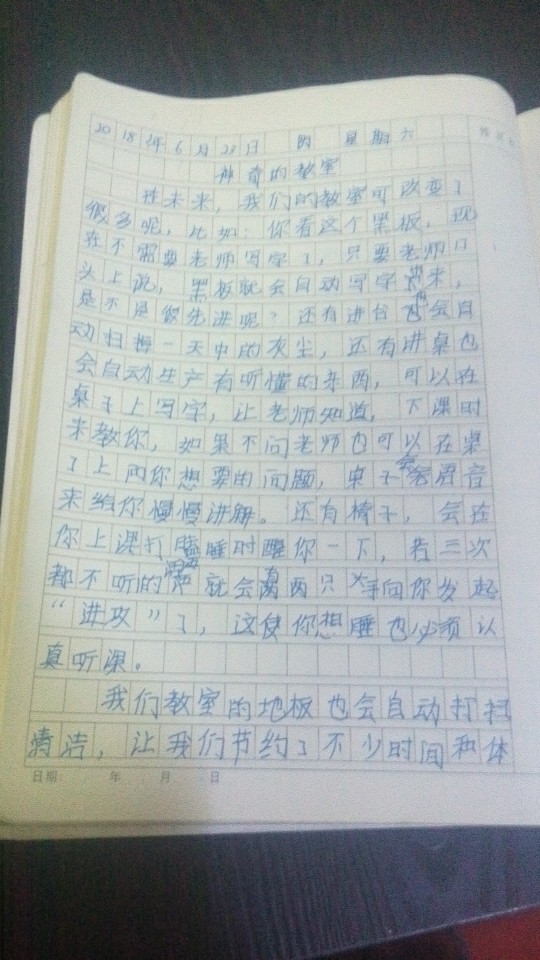 2018年6月23日 晴 星期六
神奇的教室
在未来，我们的教室可改变了
很多呢，比如：你看这个黑板，现
在不需要老师写字了，只要老师口
头上说，黑板就会自动写字出来，
是不是很先进呢？还有讲台也会自
动扫掉一天中的灰尘，还有讲桌也
会自动生产有听懂的东西，可以在
桌子上写字，让老师知道，下课时
来教你，如果不问老师也可以在桌
子上问你想要的问题，桌子会语音
来给你慢慢讲解。还有椅子，会在
你上课打瞌睡时醒你一下，若三次
都不听的话就会有两只大手向你发起
“进攻”了，这使你想睡也必须认
真听课。
我们教室的地板也会自动打扫
清洁，让我们节约了不少时间和体
日期 年 月 日